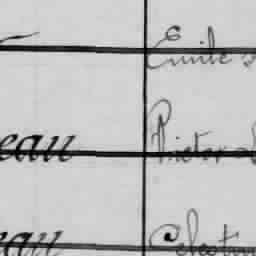 Emile
eau Victor
eau Celestin